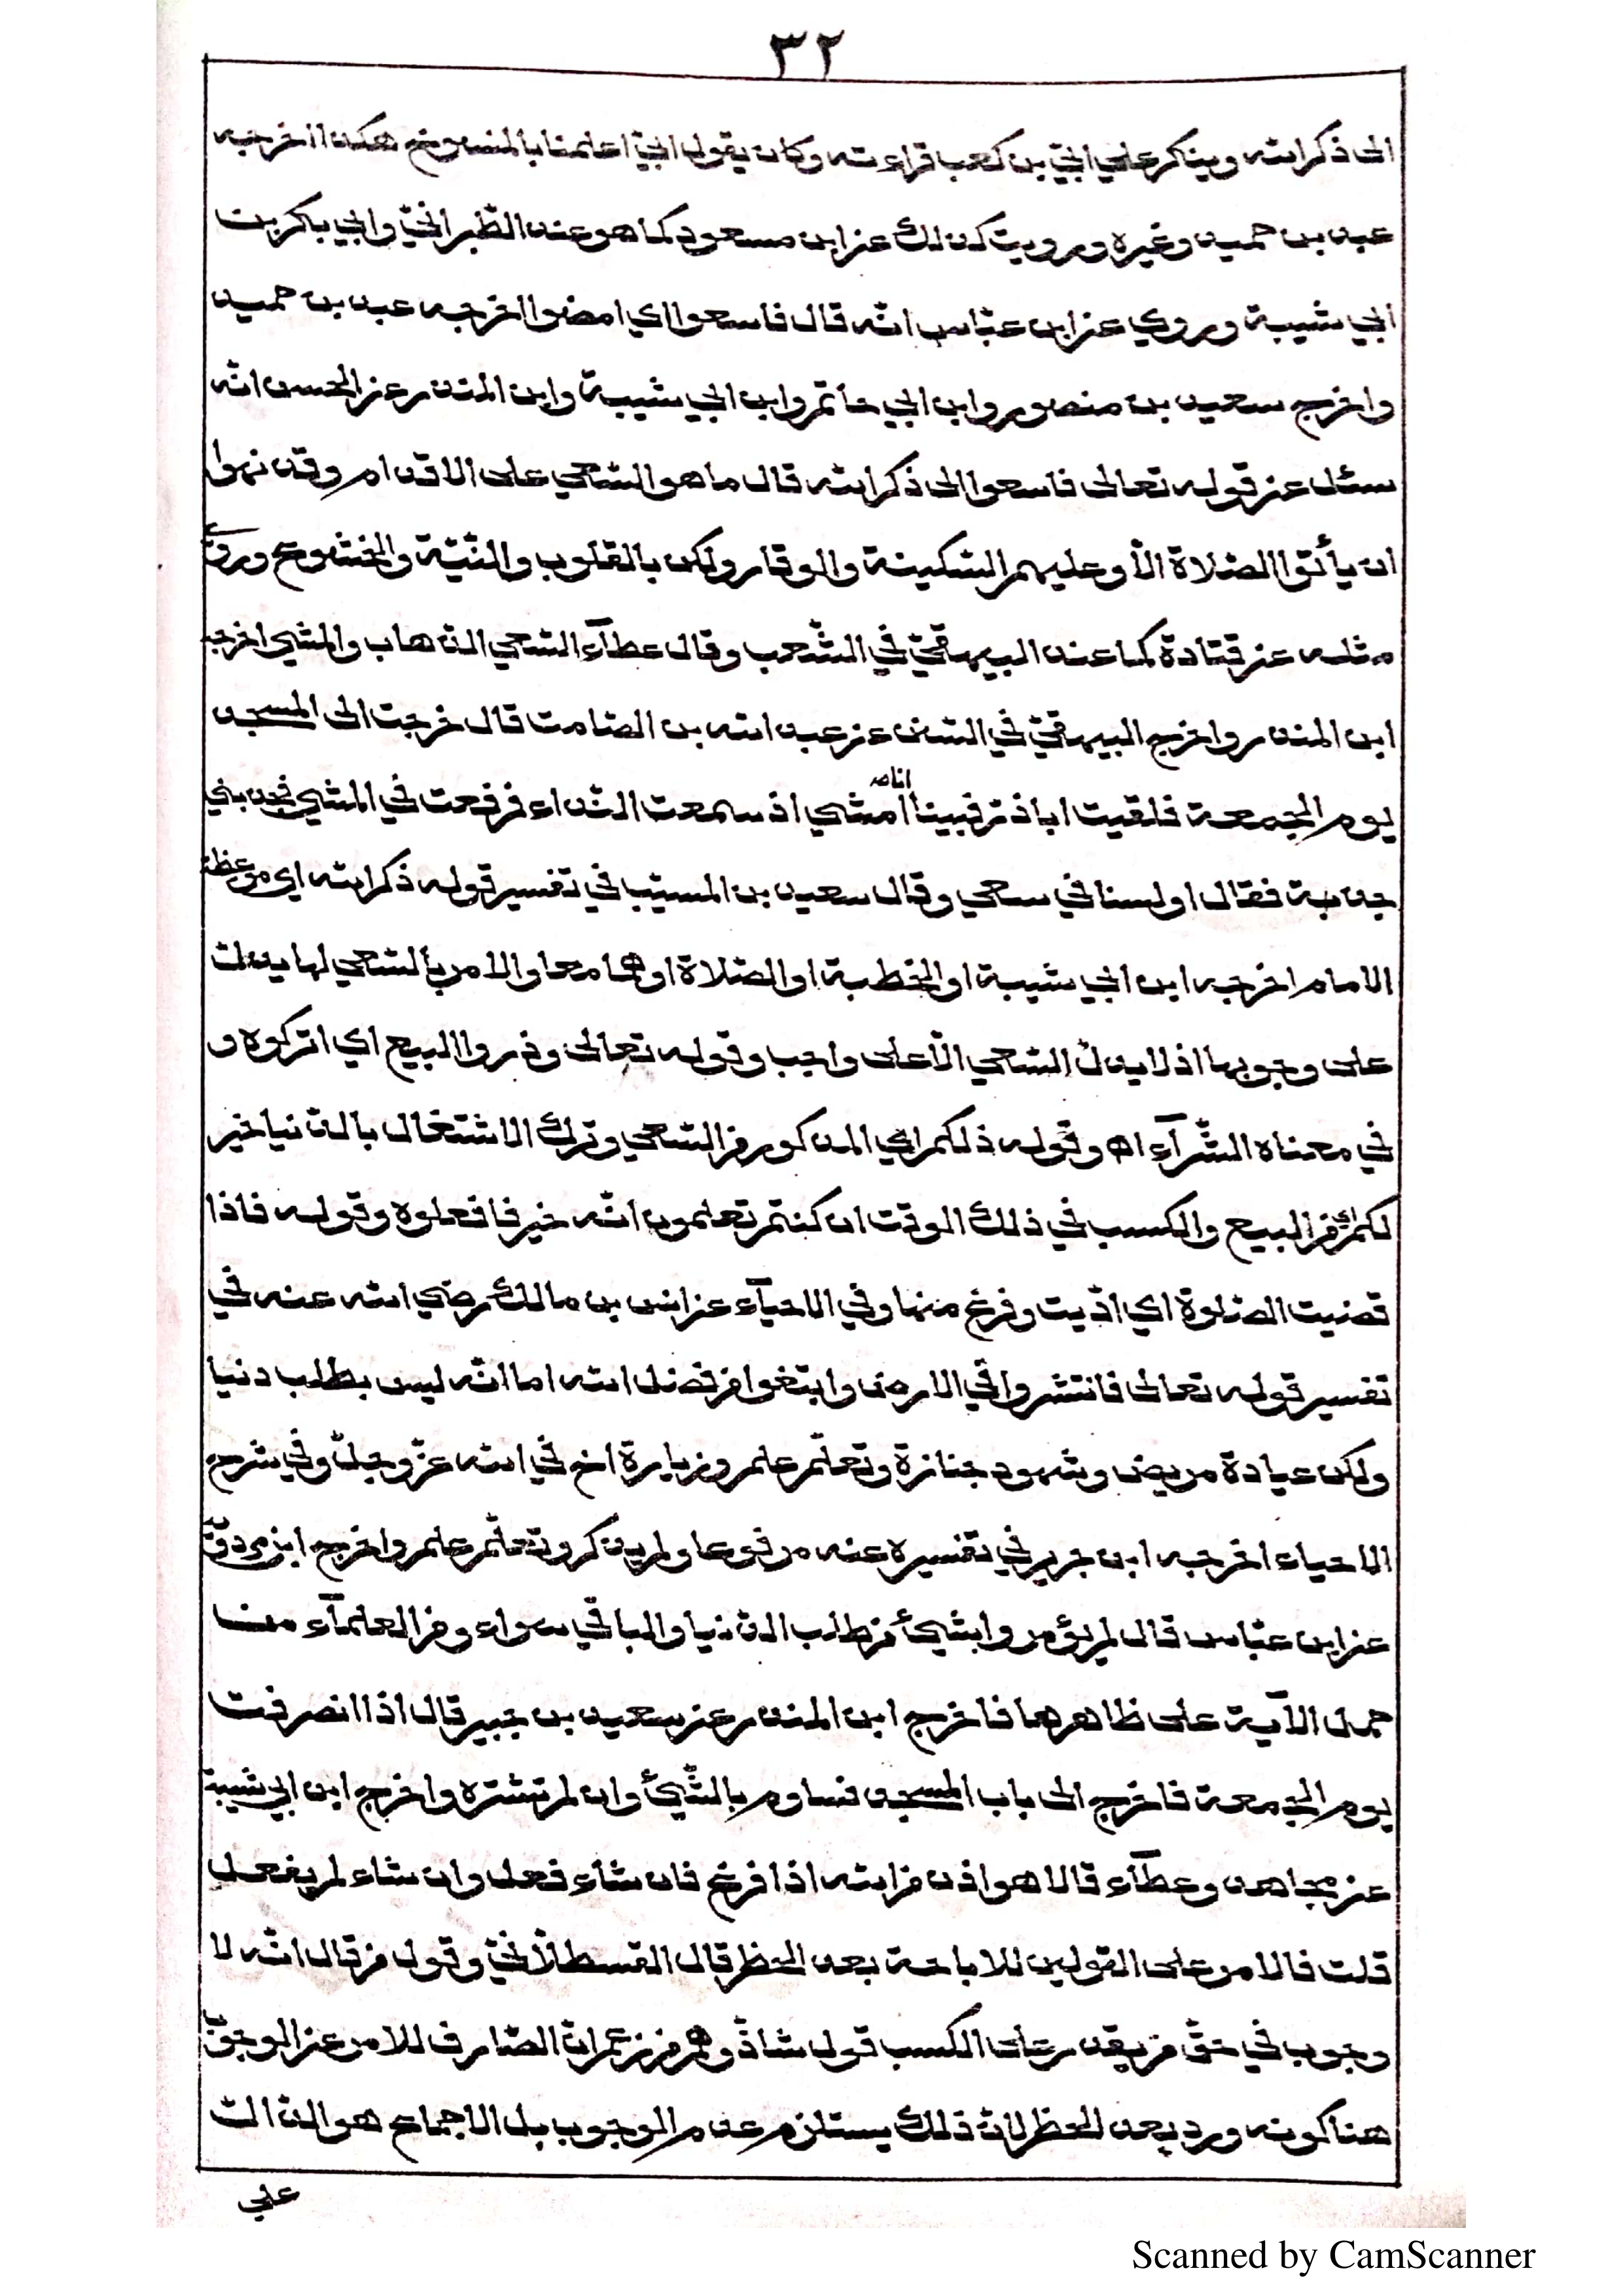 ٣٢
الى ذكر الله وينكر على ابيّ بن كعب قراءته وكان يقول ابيّ اعلمنا بالمنسوخ هكذا اخرجه
عبد بن حميد وغيره ورويت كذلك عن ابن مسعود كما هو عند الطّبرانيّ وابي بكر بن
ابي شيبة وروي عن ابن عبّاس انّه قال فاسعوا اي امضوا اخرجه عبد بن حميد
واخرج سعيد بن منصور وابن ابي حاتم وابن ابي شيبة وابن المنذر عن الحسن انّه
سئل عن قوله تعالى فاسعوا الى ذكر الله قال ما هو السّعي على الاقدام وقد نهوا
ان يأتوا الصّلاة الّا وعليهم السّكينة والوقار ولكن بالقلوب والنّيّة والخشوع وروي
مثله عن قتادة كما عند البيهقيّ في الشّعب وقال عطآء السّعي الذّهاب والمشي اخرجه
ابن المنذر واخرج البيهقيّ في السّنن عن عبد الله بن الصّامت قال خرجت الى المسجد
يوم الجمعة فلقيت اباذر فبينا انا امشي اذ سمعت النّداء فرفعت في المشي فجذبني
جذبة فقال اولسنا في سعي وقال سعيد بن المسيّب في تفسير قوله ذكر الله اي موعظة
الامام اخرجه ابن ابي شيبة او الخطبة او الصّلاة او هما معا والامر بالسّعي لها يدلّ
على وجوبها اذ لا يدلّ السّعي الّا على واجب وقوله تعالى وذروا البيع اي اتركوه و
في معناه الشّرآء اه وقوله ذلكم اي المذكور من السّعي وترك الاشتغال بالدّنيا خير
لكم اي من البيع والكسب في ذلك الوقت ان كنتم تعلمون انّه خير فافعلوه وقوله فاذا
قضيت الصّلوة اي ادّيت وفرغ منها وفي الاحيآء عن انس بن مالك رضي الله عنه في
تفسير قوله تعالى فانتشروا في الارض وابتغوا من فضل الله اما انّه ليس بطلب دنيا
ولكن عيادة مريض وشهود جنازة وتعلّم علم وزيارة اخ في الله عزّ وجلّ وفي شرح
الاحياء اخرجه ابن جرير في تفسيره عنه مرفوعا ولم يذكر وتعلّم علم واخرج ابن مردويه
عن ابن عبّاس قال لم يؤمروا بشيئ من طلب الدّنيا والباقي سواء ومن العلمآء من
حمل الآية على ظاهرها فاخرج ابن المنذر عن سعيد بن جبير قال اذا انصرفت
يوم الجمعة فاخرج الى باب المسجد فساوم بالشّيئ وان لم تشتره واخرج ابن ابي شيبة
عن مجاهد وعطآء قالا هو اذن من الله اذا فرغ فان شاء فعل وان شاء لم يفعل
قلت فالامر على القولين للاباحة بعد الحظر قال القسطلّانيّ وقول من قال انّه لا
وجوب في حقّ من يقدر على الكسب قول شاذّ ووهم من زعم انّ الصّارف للامر عن الوجوب
هنا كونه ورد بعد الحظر لانّ ذلك يستلزم عدم الوجوب بل الاجماع هو الدّالّ
على
Scanned by CamScanner